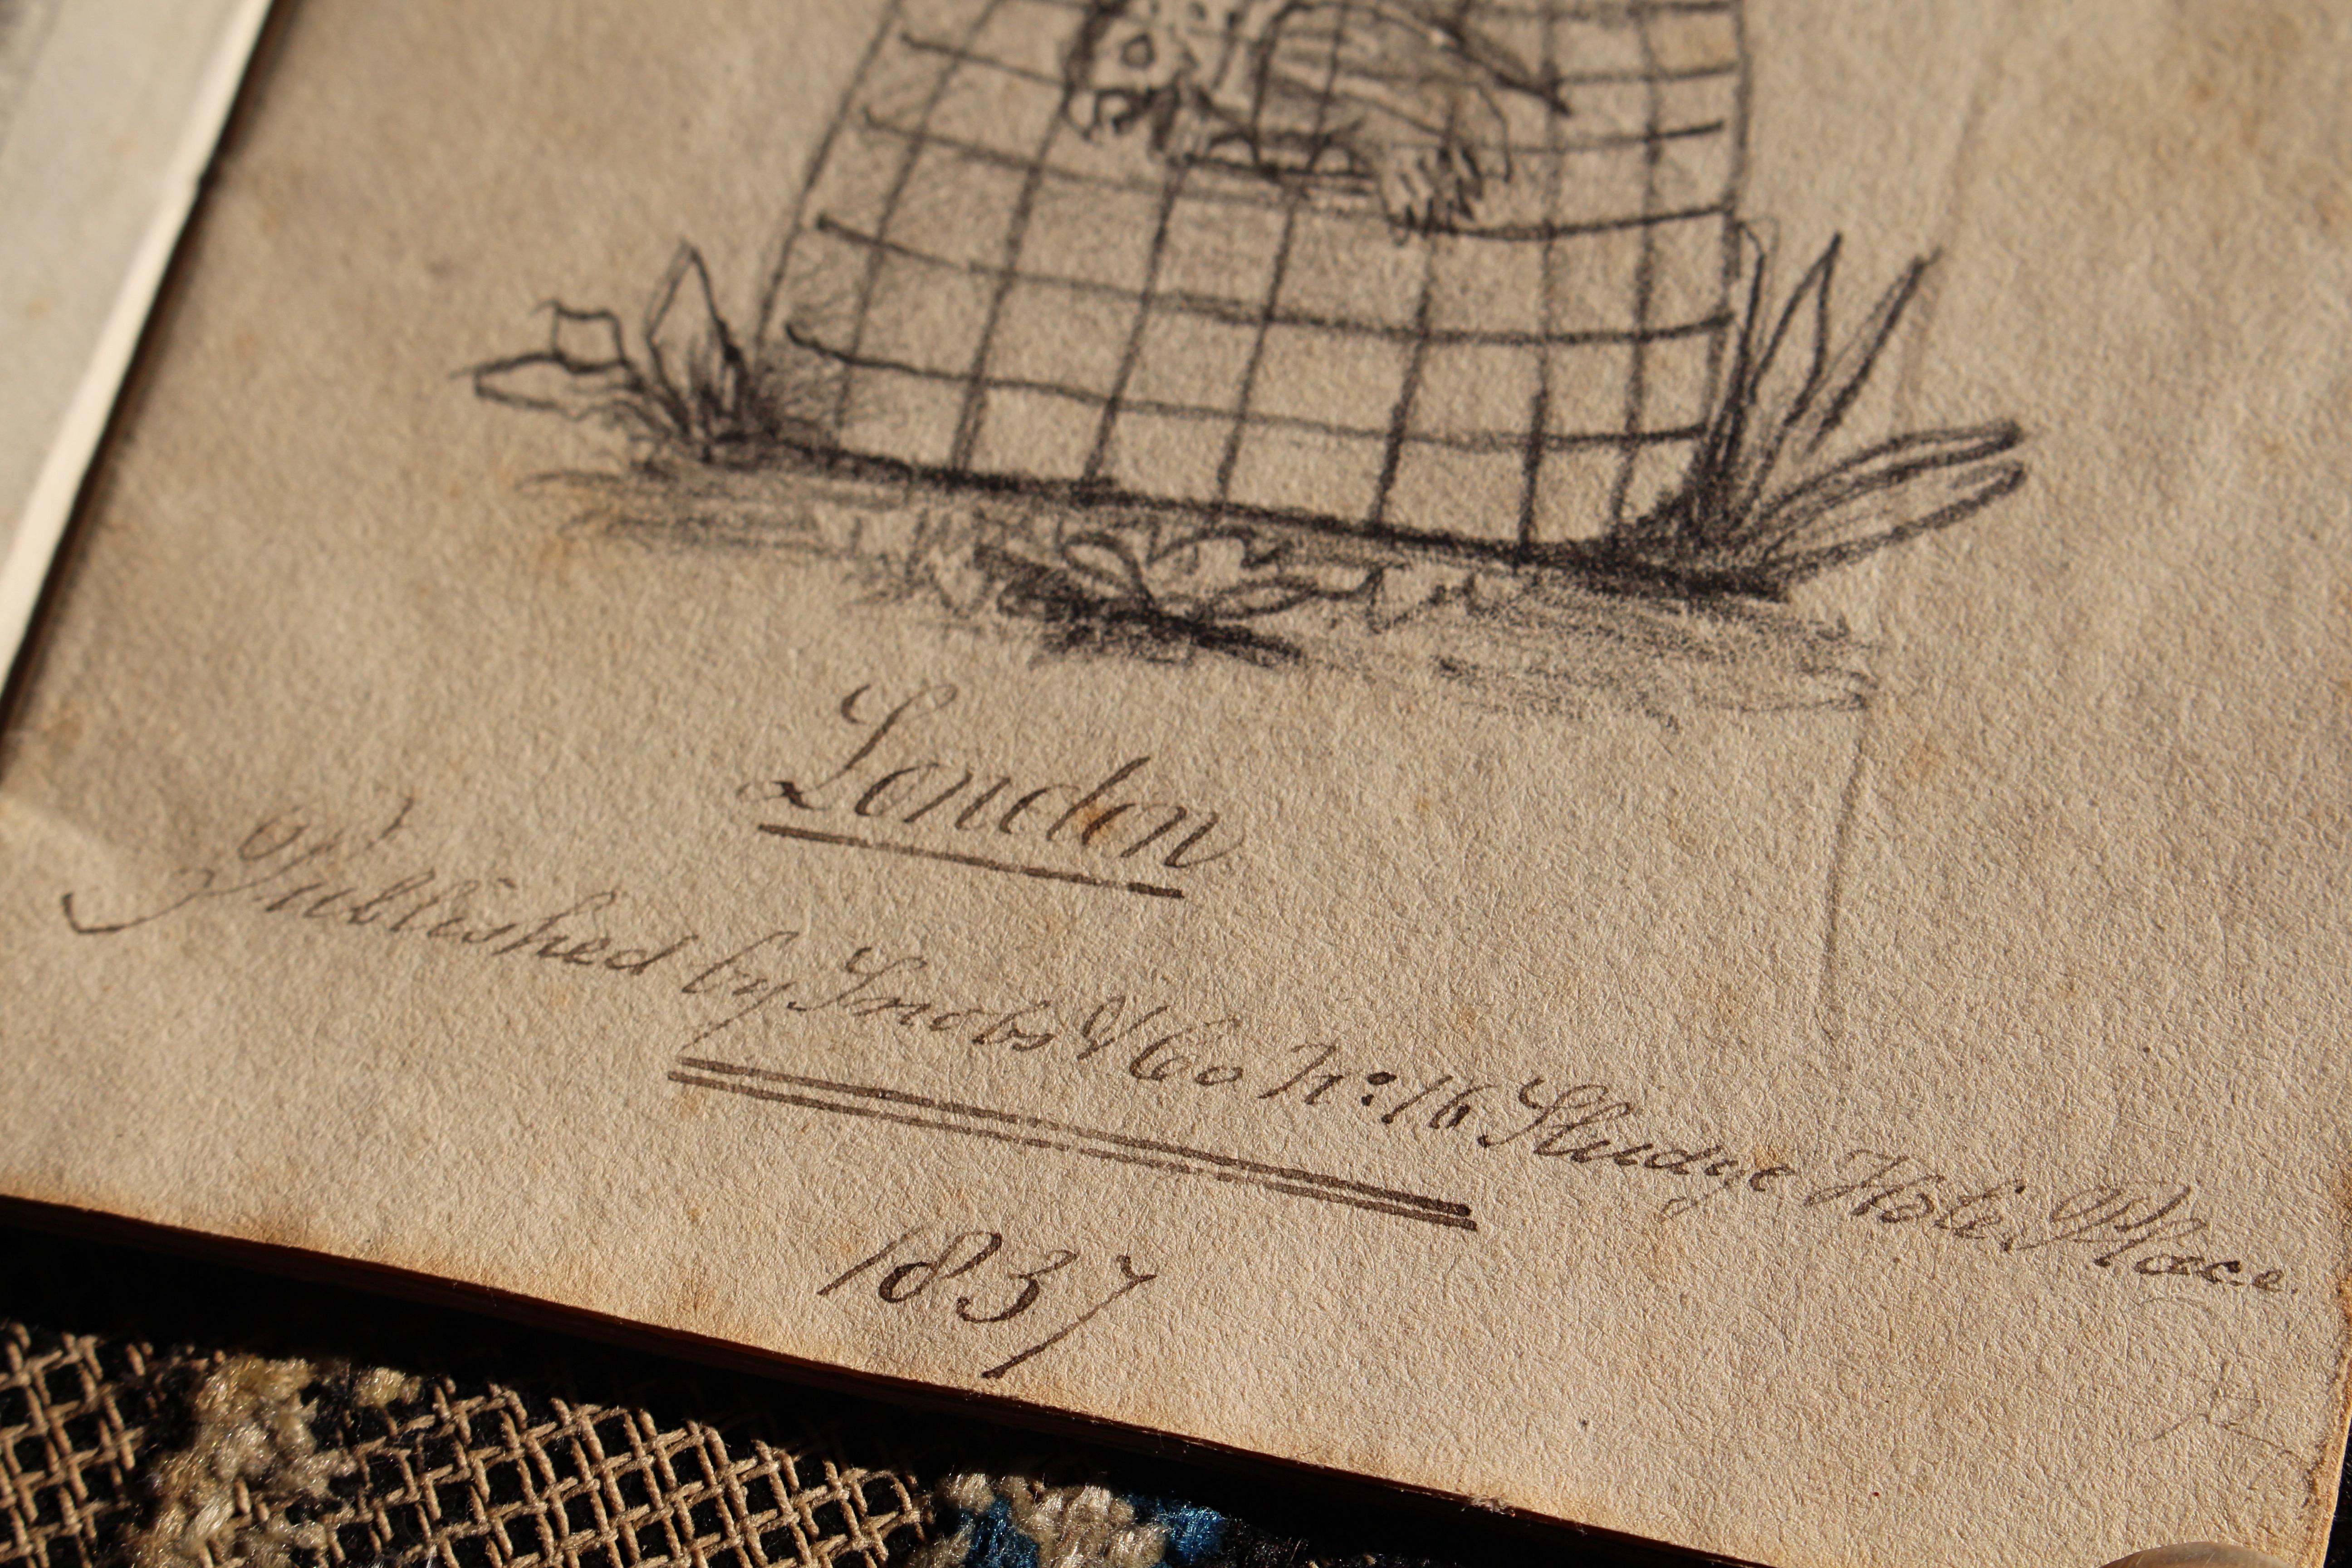 London
Published by Snobs & Co No: 16 Sludge Hole Place.
1837